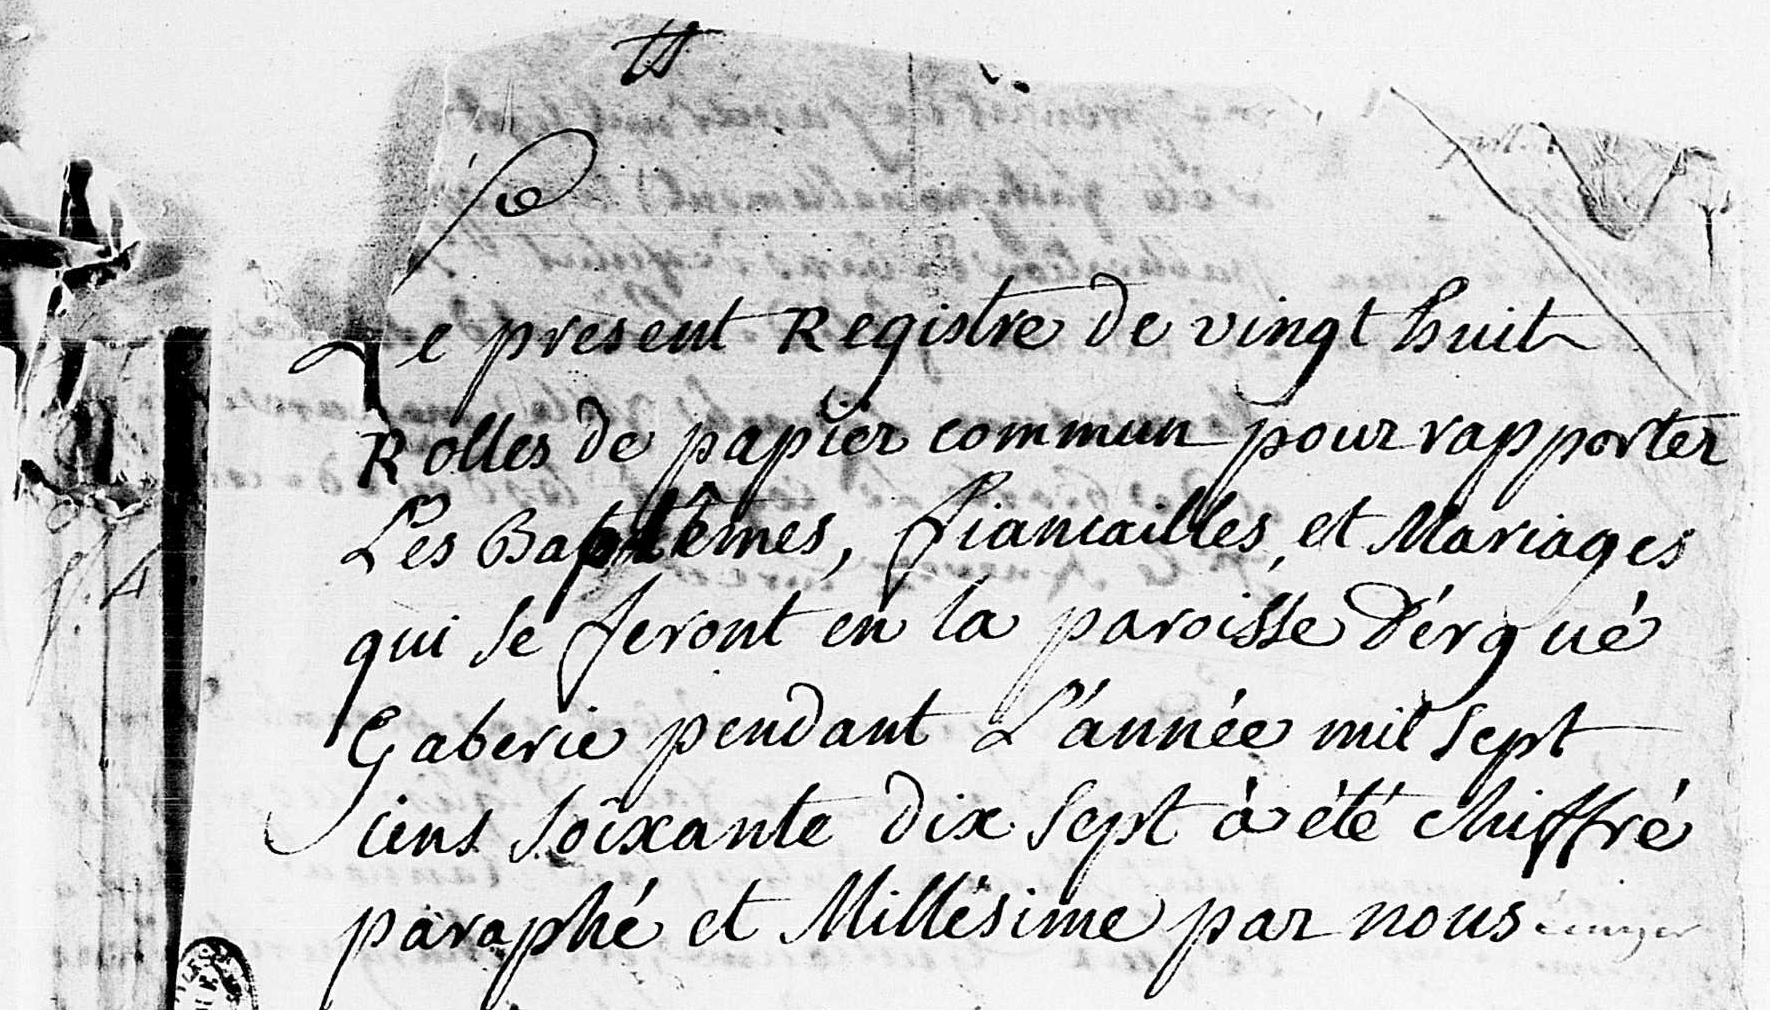 Le present Registre de vingt huit
Rolles de papier commun pour rapporter
Les Baptêmes, fiancailles, et Mariages
qui se feront en la paroisse D'érgué
Gaberie pendant L'année mil sept
cens soixante dix sept à été chiffré
paraphé et Millésime par nous